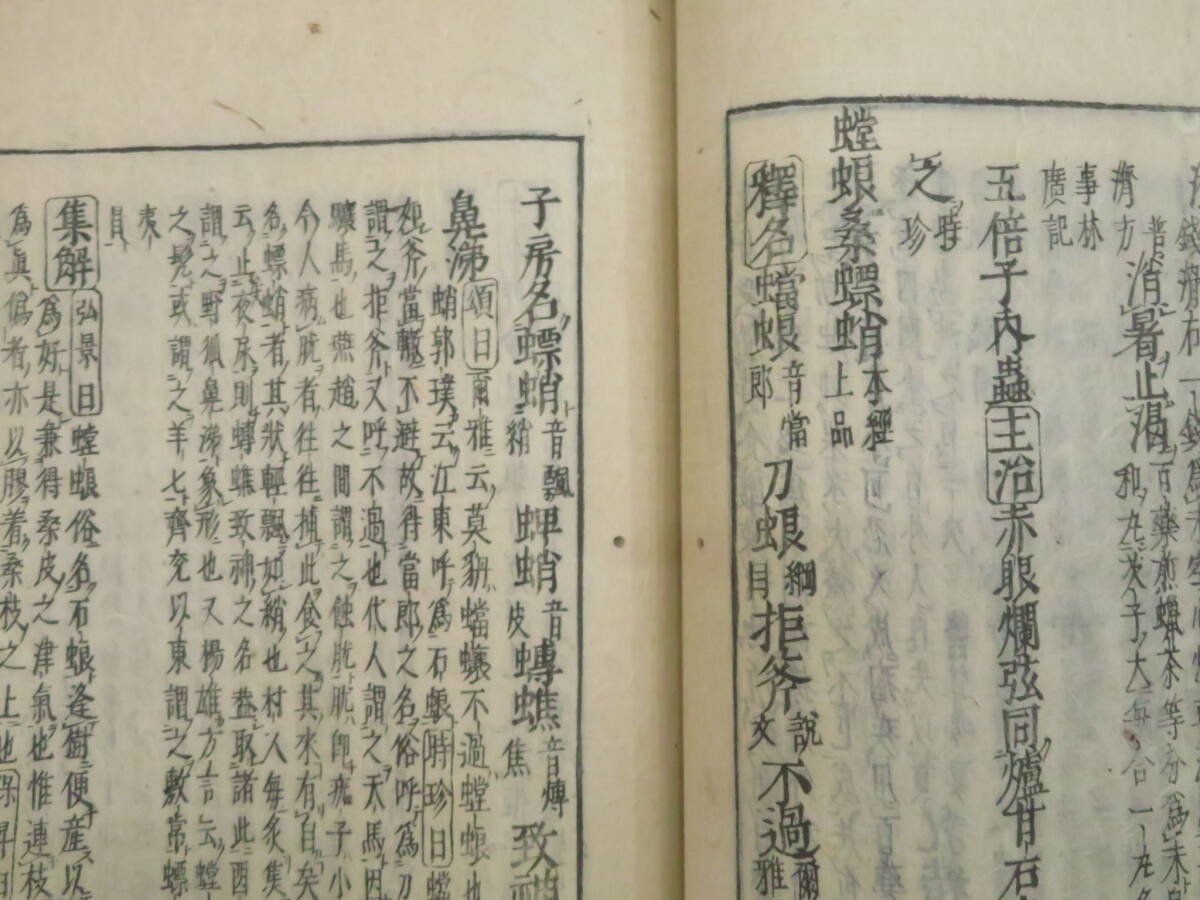 濟方 消暑止渴 百藥煎蠟茶等分為末
和丸芡子大每含一丸名
事林廣記
五倍子內蟲 主治 赤眼爛弦同爐甘石
之時珍
螳蜋桑螵蛸 本經上品
釋名 蟷蜋 音當郎 刀蜋 綱目 拒斧 說文 不過 爾雅
子房名螵蛸 音飄綃 蜱蛸 音皮 䗚蟭 音煿焦 致神
鼻涕 頌曰 爾雅云莫貈蟷蠰不過螳蜋也
蛸郭璞云江東呼為石蜋 時珍曰 螳
如斧當轍不避故得當郎之名俗呼為刀
謂之拒斧又呼不過也代人謂之天馬因
驤馬也燕趙之間謂之蝕肬肬即疣子小
今人病肬者往往捕此食之其來有自矣
名螵蛸者其狀輕飄如綃也村人每炙
云止夜尿則䗚蟭致神之名蓋取諸此酉
謂之野狐鼻涕象形也又揚雄方言云螳
之髦或謂之羊七齊兗以東謂之敷常螵
集解 弘景曰 螳蜋俗名石蜋逢樹便產以
為好是兼得桑皮之津氣也惟連枝
為真偽者亦以膠着桑枝之上也 保昇曰